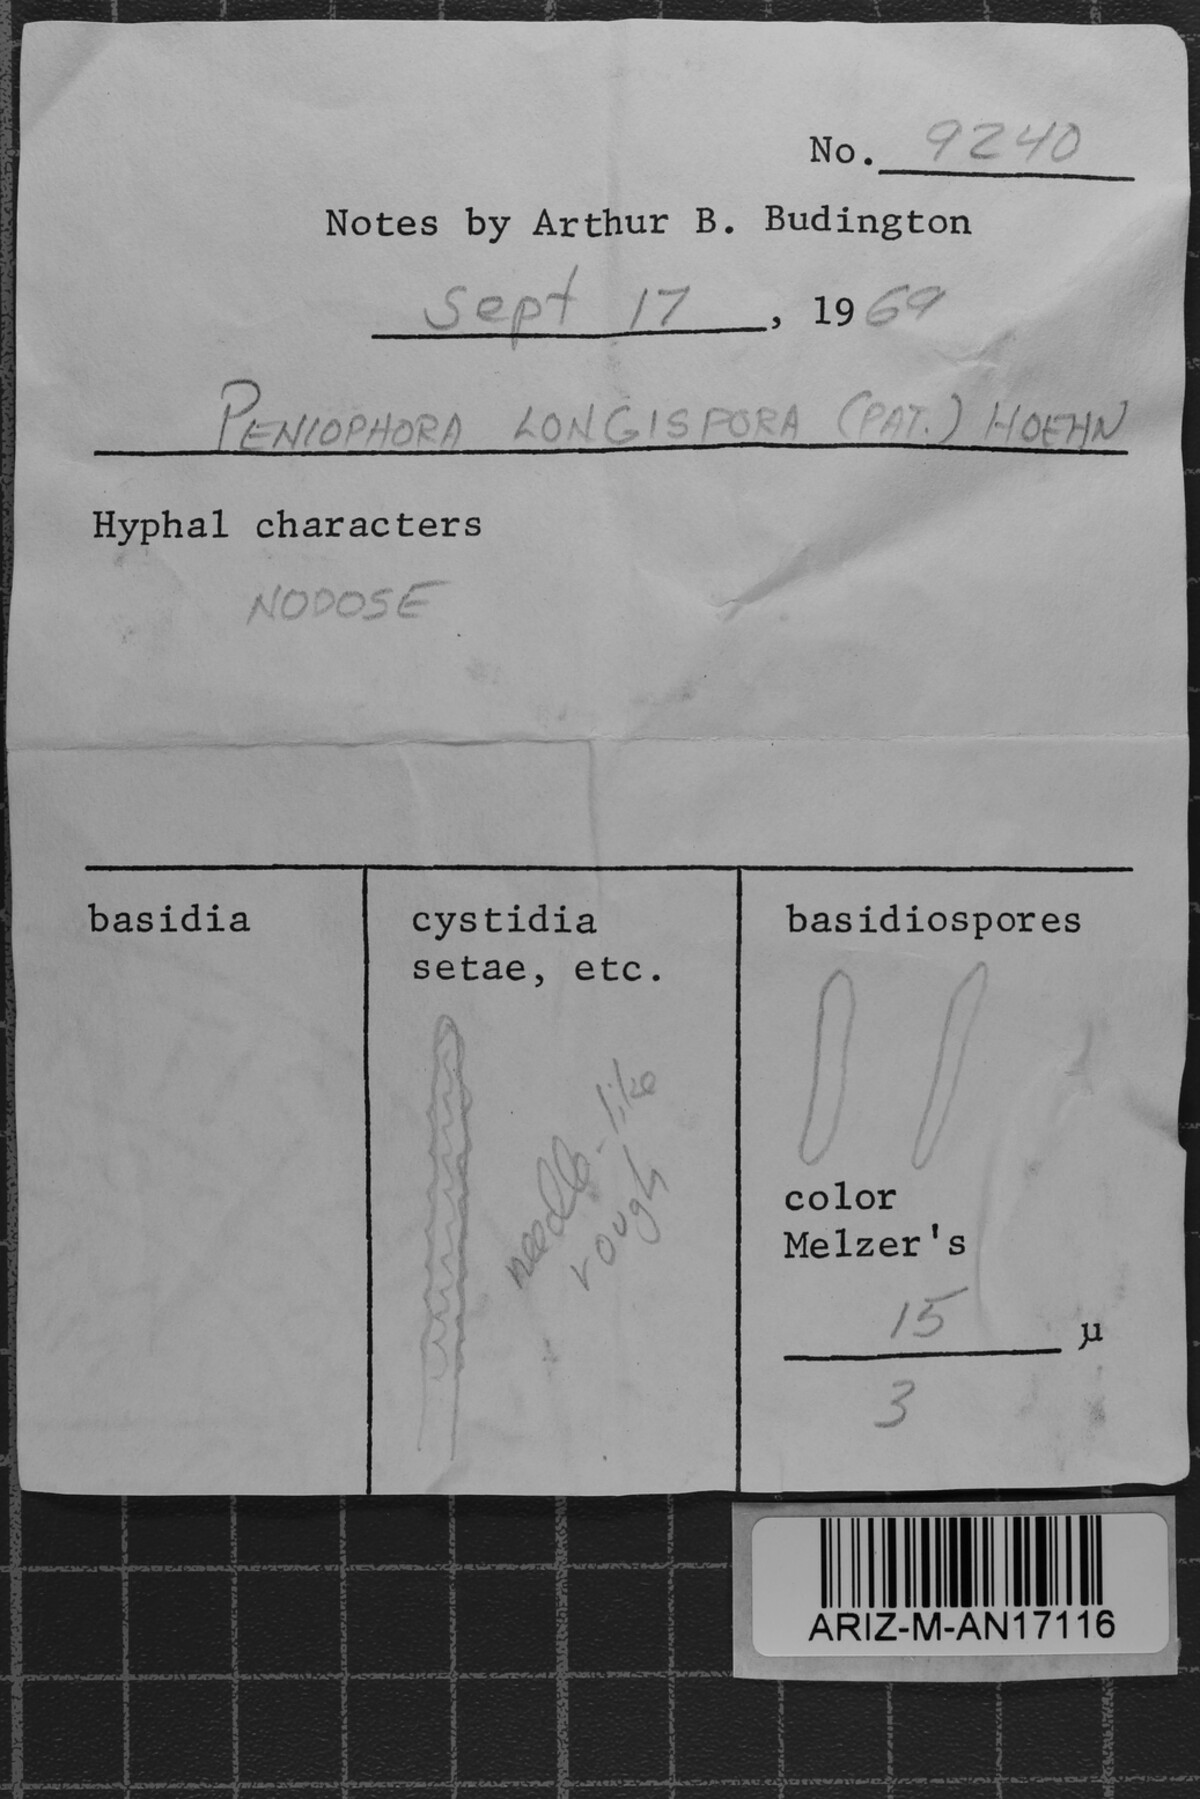 No. 9240
Notes by Arthur B. Budington
Sept 17, 1969
PENIOPHORA LONGISPORA (PAT.) HOEHN
Hyphal characters
NODOSE
basidia
cystidia
setae, etc.
needle-like
rough
basidiospores
color
Melzer's
15 µ
3
ARIZ-M-AN17116